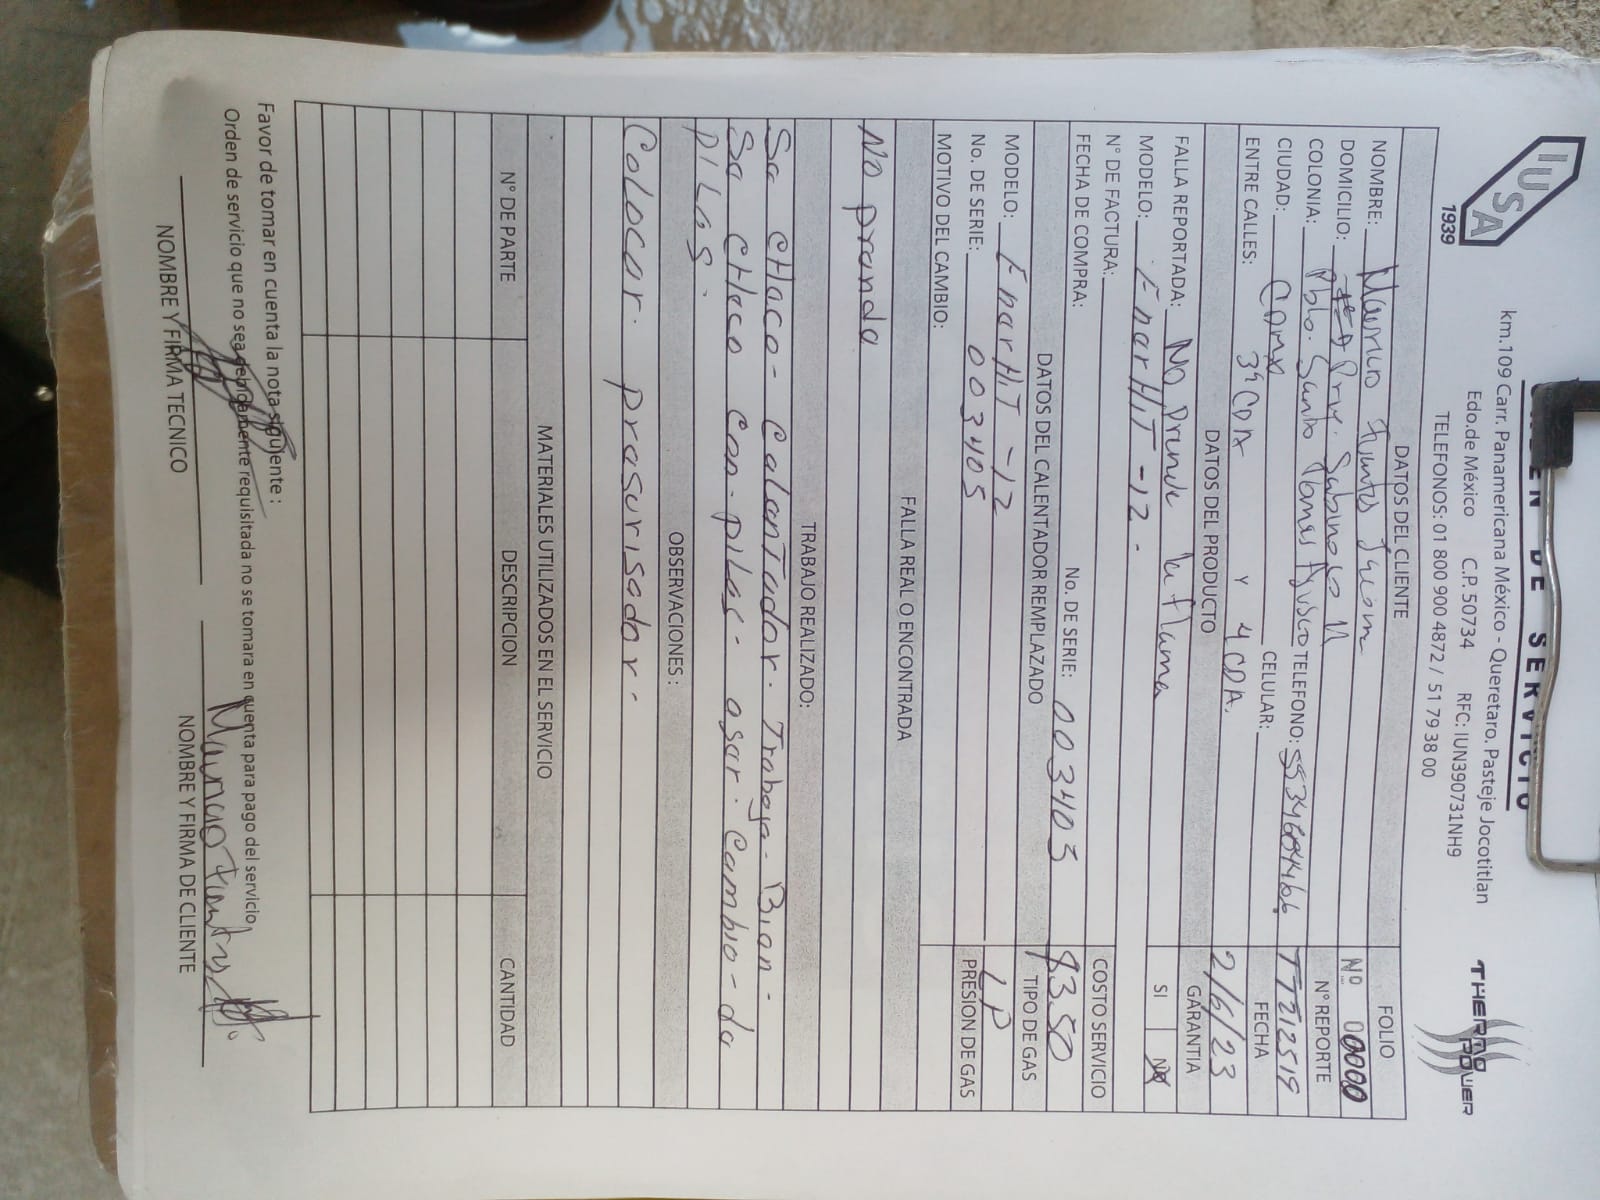 IUSA
1939
ORDEN DE SERVICIO
km.109 Carr. Panamericana México - Queretaro. Pasteje Jocotitlan
Edo.de México C.P. 50734 RFC: IUN390731NH9
TELEFONOS: 01 800 900 4872 / 51 79 38 00
THERMO POWER
DATOS DEL CLIENTE
FOLIO
NOMBRE: Mauricio Fuentes
Nº 00000
DOMICILIO: Priv. Sabinos
N° REPORTE
COLONIA: Pblo. Santo Tomas Ajusco TELEFONO:
TT212519
CIUDAD: CDMX CELULAR:
FECHA
ENTRE CALLES: 3ª CDA Y 4 CDA.
2/6/23
DATOS DEL PRODUCTO
GARANTIA
FALLA REPORTADA: No Prende la flama
SI NO
MODELO: EnarHiT-12.
N° DE FACTURA:
COSTO SERVICIO
FECHA DE COMPRA: No. DE SERIE: 003405
$350
DATOS DEL CALENTADOR REMPLAZADO
TIPO DE GAS
MODELO: EnarHiT-12
LP
No. DE SERIE: 003405
PRESION DE GAS
MOTIVO DEL CAMBIO:
FALLA REAL O ENCONTRADA
No pranda
TRABAJO REALIZADO:
Sa CHaco- CalanTador. Trabaja- Bian-
Sa CHaco Con-pilas- osar. Cambio-da
pilas.
OBSERVACIONES :
Colocar. prasurisador.
MATERIALES UTILIZADOS EN EL SERVICIO
N° DE PARTE DESCRIPCION CANTIDAD
Favor de tomar en cuenta la nota siguiente :
Orden de servicio que no sea debidamente requisitada no se tomara en cuenta para pago del servicio
Mauricio Fuentes
NOMBRE Y FIRMA TECNICO NOMBRE Y FIRMA DE CLIENTE